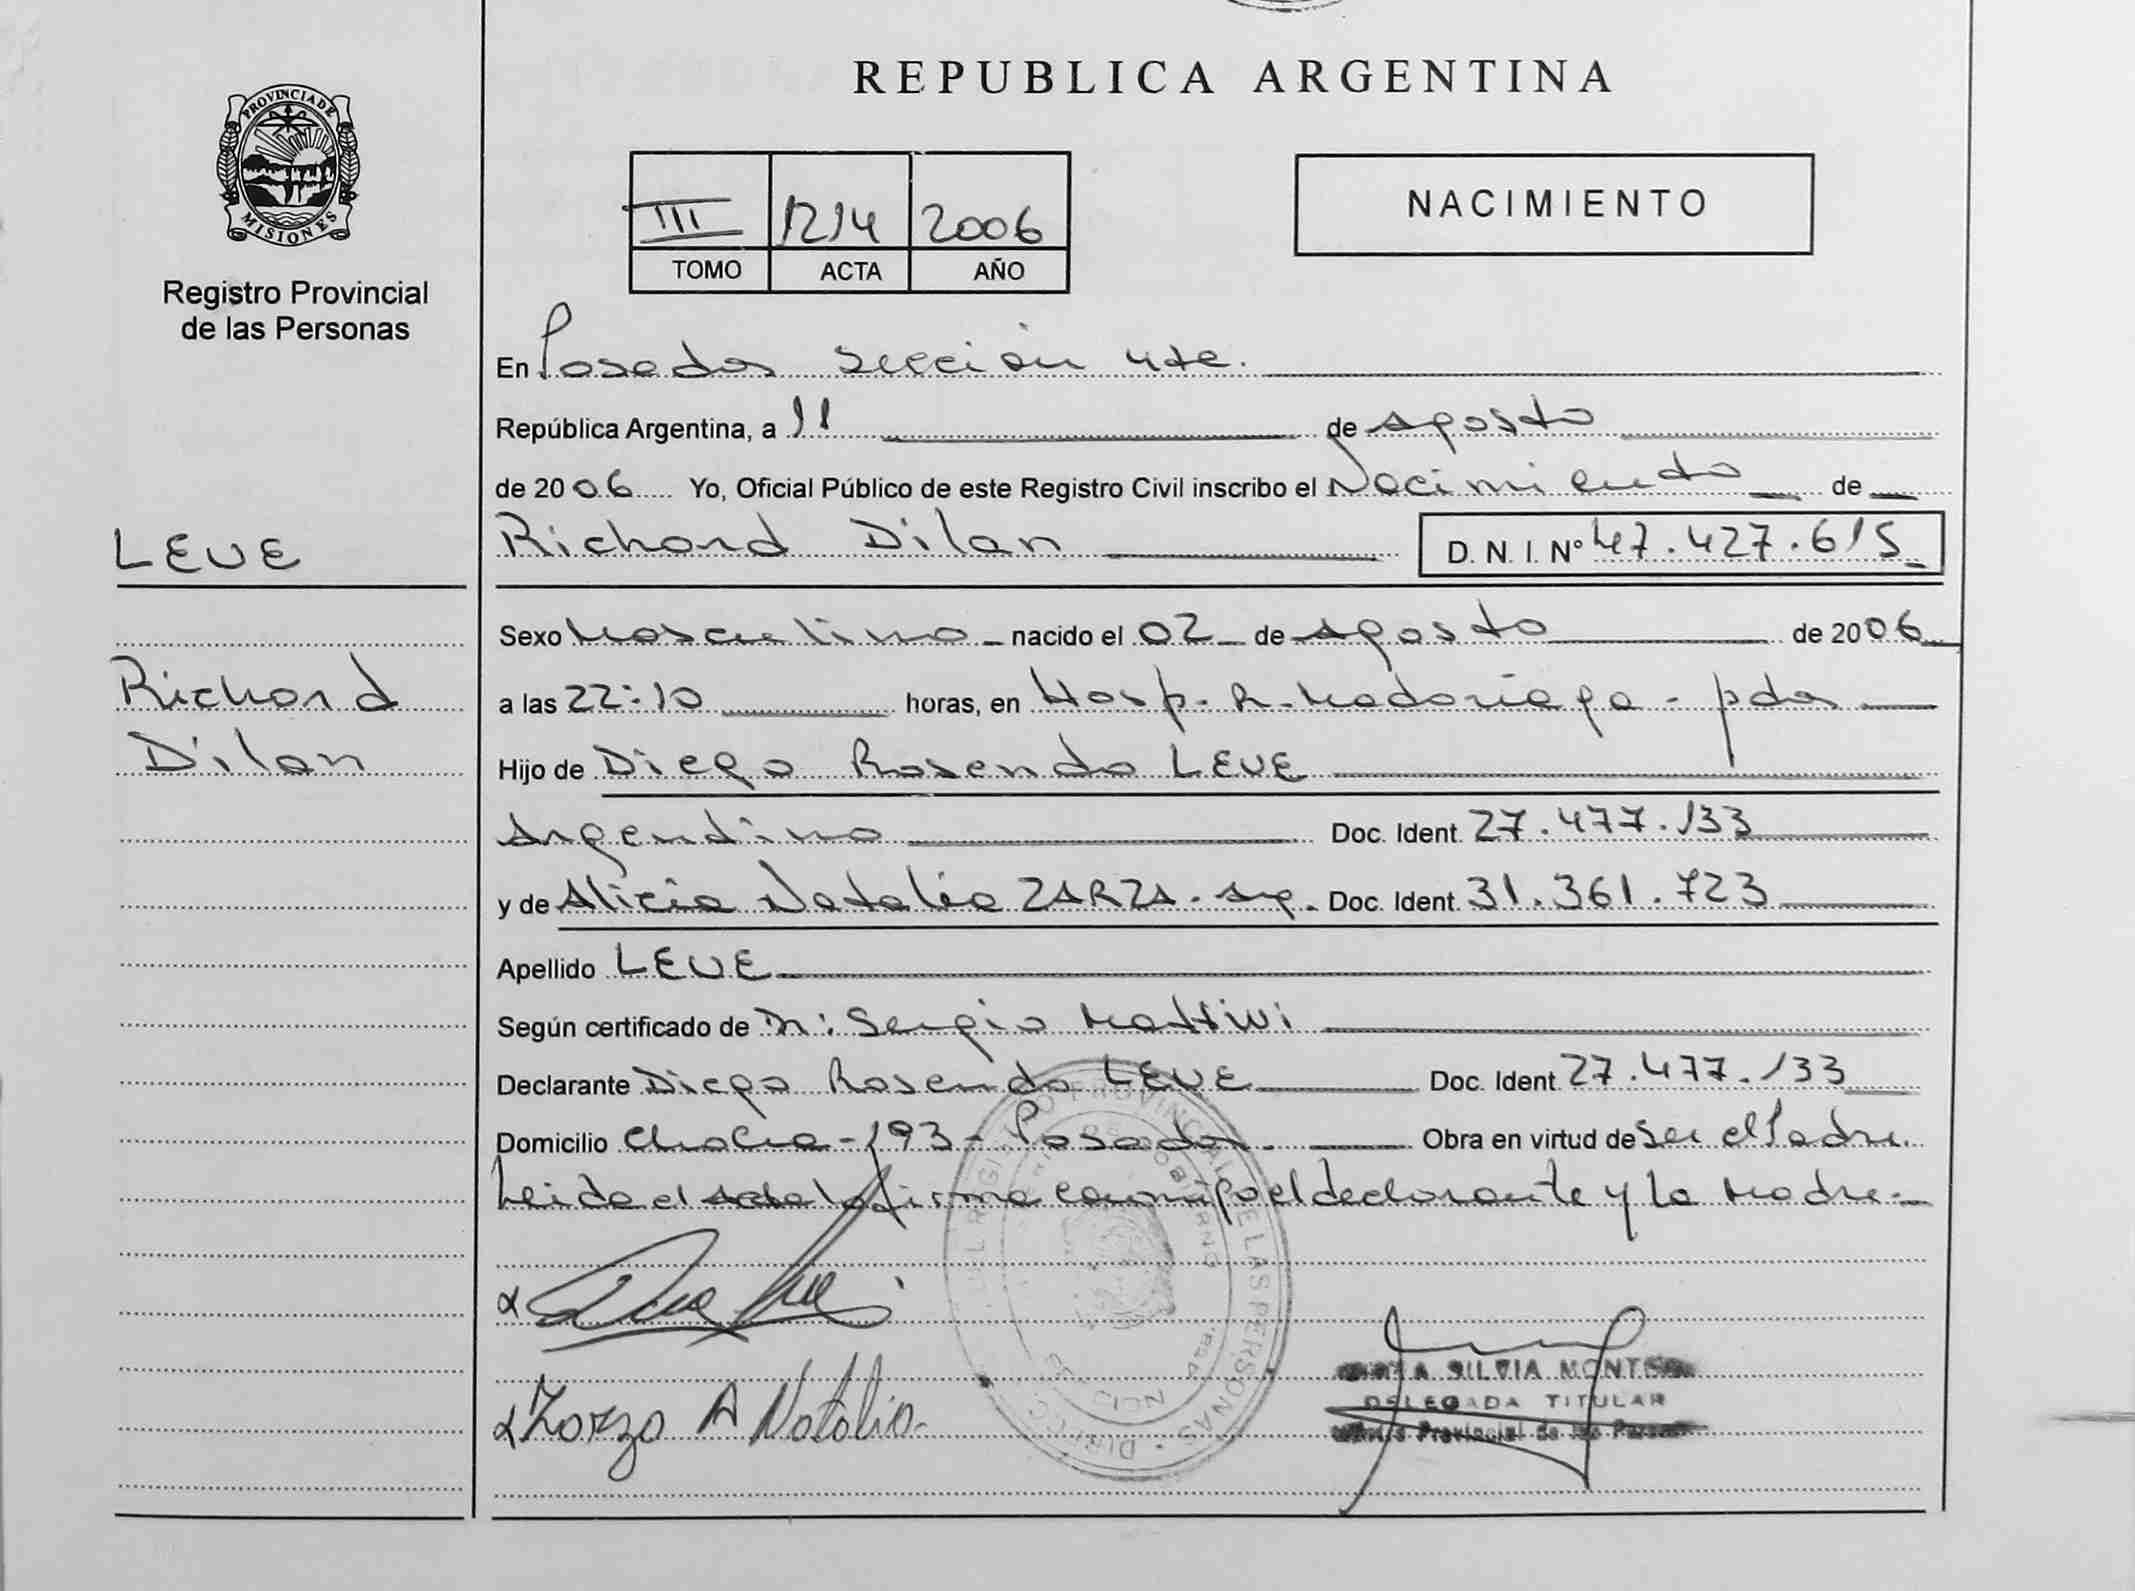 REPUBLICA ARGENTINA
PROVINCIA DE
MISIONES
Registro Provincial
de las Personas
III 1214 2006
TOMO ACTA AÑO
NACIMIENTO
En Posadas sección 4ta.
República Argentina, a 11 de Agosto
de 2006 Yo, Oficial Público de este Registro Civil inscribo el Nacimiento de
LEVE
Richard Dilan
D. N. I. Nº 47.427.615
Sexo Masculino nacido el 02 de Agosto de 2006
Richard
Dilan
a las 22:10 horas, en Hosp. R. Madariaga - pdas
Hijo de Diego Rosendo LEVE
Argentino Doc. Ident. 27.477.133
y de Alicia Natalia ZARZA. Arg. Doc. Ident. 31.361.723
Apellido LEVE
Según certificado de Dr: Sergio Mattivi
Declarante Diego Rosendo LEVE Doc. Ident 27.477.133
Domicilio Chacra - 193 - Posadas. Obra en virtud de Ser el Padre.
Leida el acta la firma conmigo el declarante y la Madre.
Zarza A Natalia
SILVIA
DELEGADA TITULAR
Provincial de las
PROVINCIAL DE LAS PERSONAS